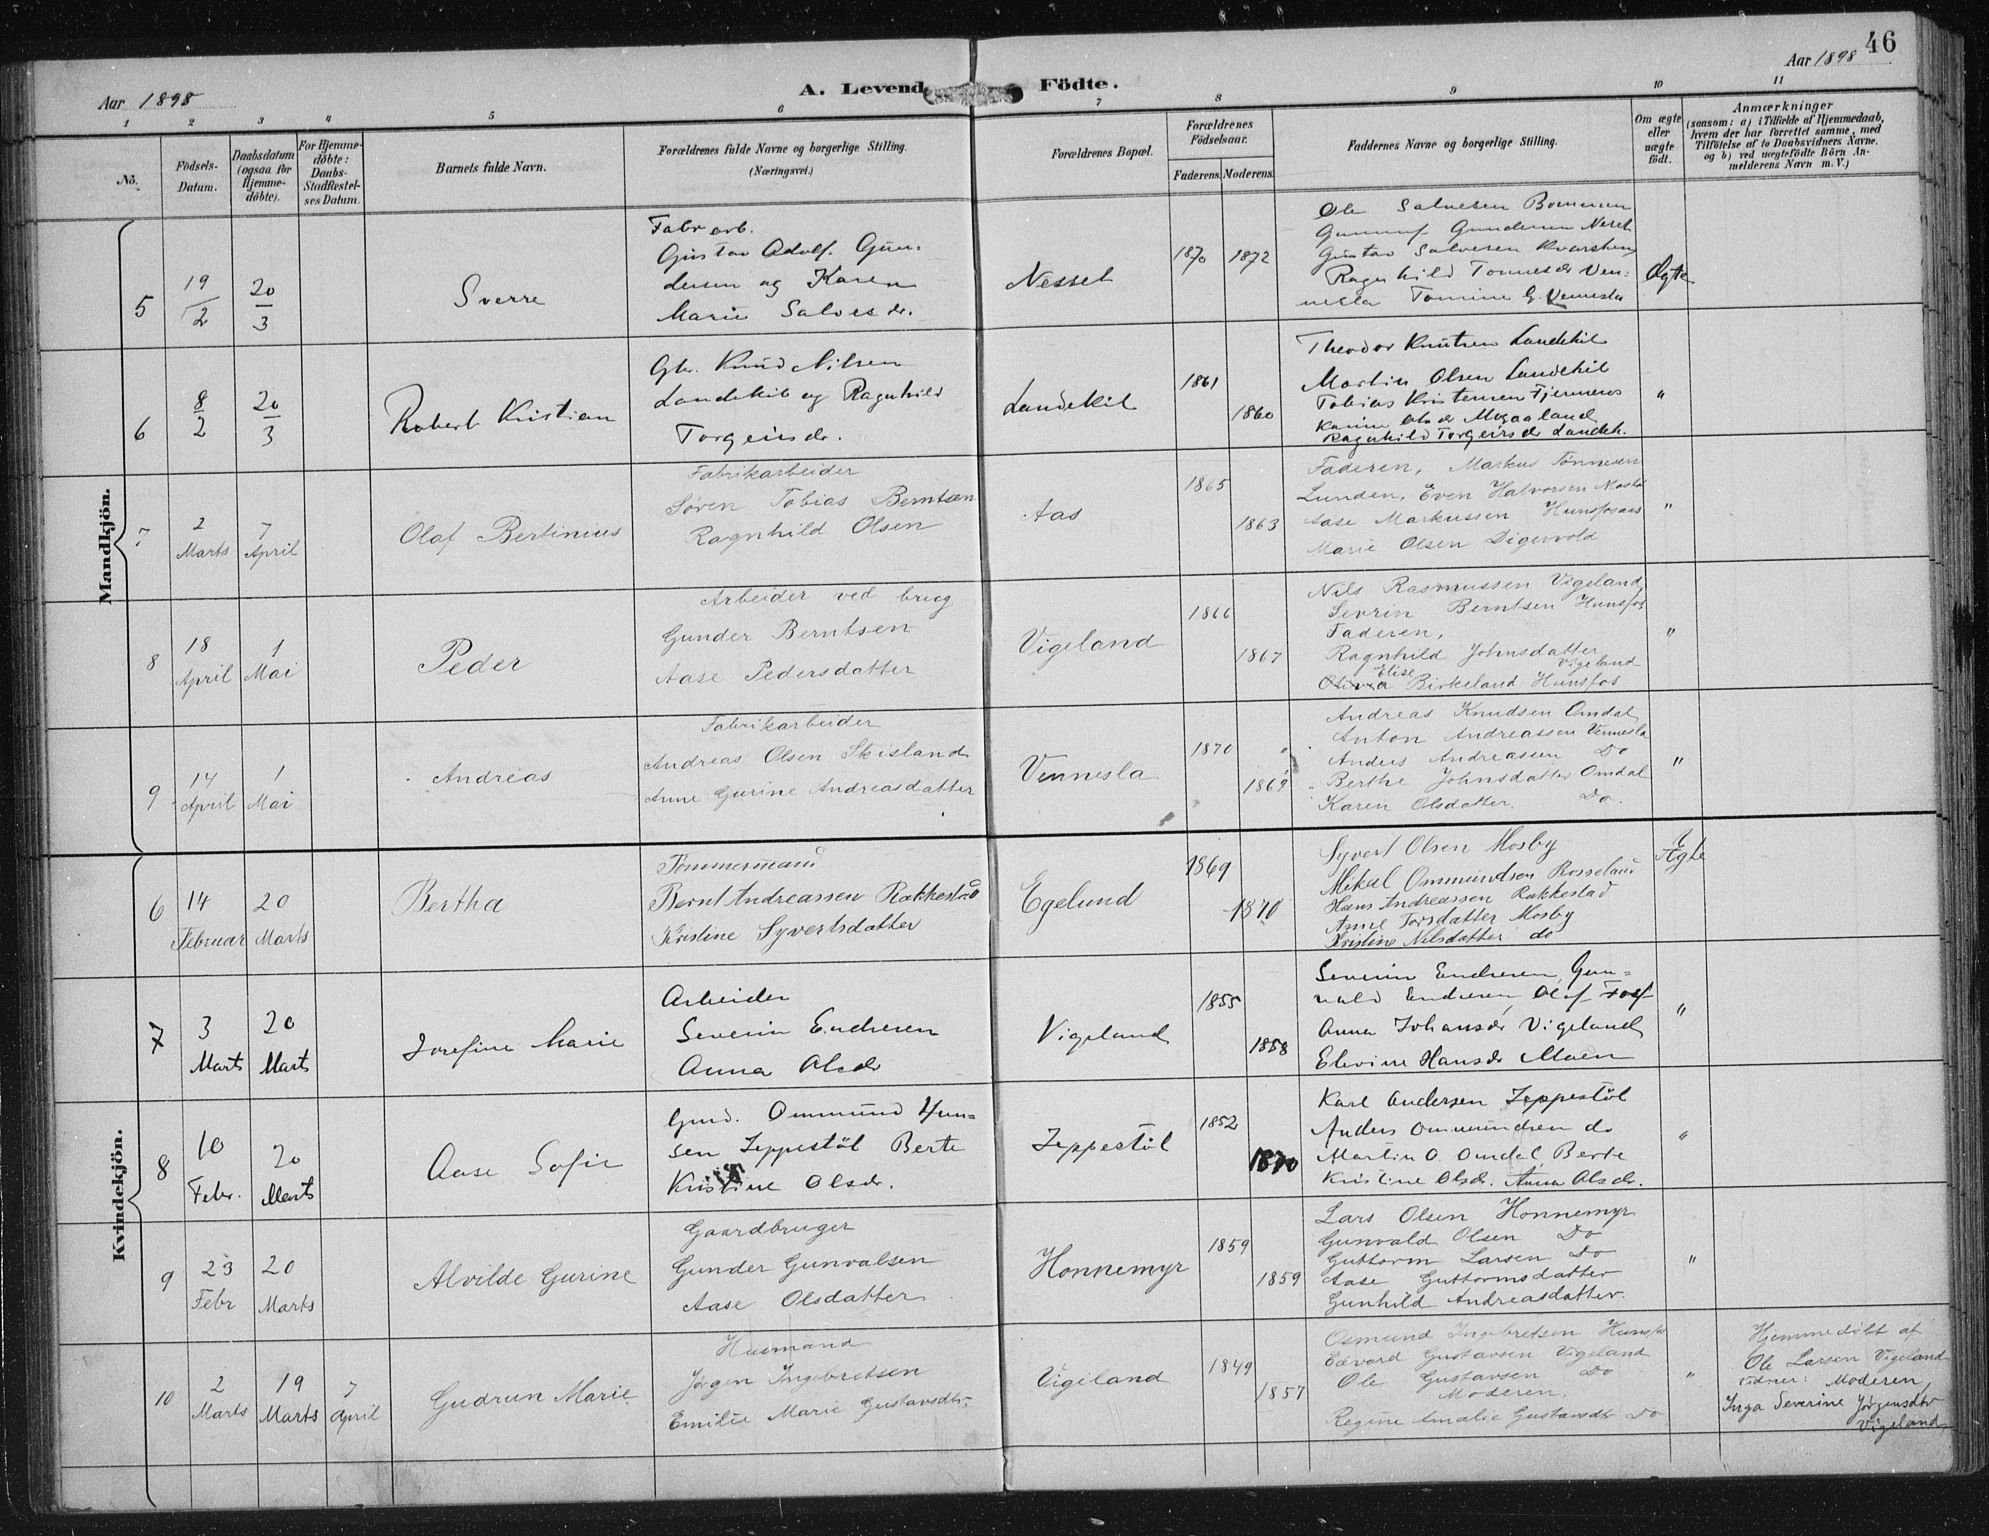 46
Aar 1898
A. Levende Födte.
Aar 1898
1 2 3 4 5 6 7 8 9 10 11
No.
Födsels-Datum.
Daabsdatum (ogsaa for Hjemme-döbte).
For Hjemme-döbte: Daabs-Stadfæstel-ses Datum.
Barnets fulde Navn.
Forældrenes fulde Navne og borgerlige Stilling.
(Næringsvei.)
Forældrenes Bopæl.
Forældrenes Födselsaar.
Faderens. Moderens.
Faddernes Navne og borgerlige Stilling.
Om ægte eller uægte födt.
Anmærkninger
(saasom: a) i Tilfælde af Hjemmedaab, hvem der har forrettet samme, med Tilföielse af to Daabsvidners Navne, og b) ved uægtefödte Börn Anmelderens Navn m. V.)
Mandkjön.
5
19/2
20/3
Sverre
Fabr arb.
Gustav Adolf Gun-
dersen og Karen
Marie Salvesdr.
Nesset
1870 1872
Ole Salvesen Bommen
Gunnuf Gundersen Neset
Gustav Salvesen Kvarstein
Ragnhild Tønnesdr Ven-
nesla Tomine G. Vennesla
Ægte
6
8/2
20/3
Robert Kristian
Gbr. Knud Nilsen
Landekil og Ragnhild
Torgeirsdr.
Landekil
1861
1860
Theodor Knutsen Landekil
Martin Olsen Landekil
Tobias Kristensen Fjermeros
Karine Olsdr Mogaaland
Ragnhild Torgeirsdr Landek.
"
7
2 Marts
7 April
Olaf Bertinius
Fabrikarbeider
Søren Tobias Berntsen
Ragnhild Olsen
Aas
1865
1863
Faderen, Markus Tønnesen
Lunden, Even Halvorsen Mosby
Aase Markussen Hunsfosaas
Marie Olsen Digervold
"
8
18 April
1 Mai
Peder
Arbeider ved brug
Gunder Berntsen
Aase Pedersdatter
Vigeland
1866
1867
Nils Rasmussen Vigeland
Sevrin Berntsen Hunsfos
Faderen,
Ragnhild Johnsdatter
Vigeland
Elise
Olivia Birkeland Hunsfos
"
9
14 April
1 Mai
Andreas
Fabrikarbeider
Andreas Olsen Skisland
Anne Gurine Andreasdatter
Vennesla
1870
1869
Andreas Knudsen Omdal
Anton Andreassen Vennesla
Anders Andreassen Do
Berthe Johnsdatter Omdal
Karen Olsdatter. Do.
"
Kvindekjön.
6
14 Februar
20 Marts
Bertha
Tømmermand
Bernt Andreassen Rakkestad
Kristine Syvertsdatter
Egelund
1869
1870
Syvert Olsen Mosby
Mikal Ommundsen Rosseland
Hans Andreassen Rakkestad
Anne Torsdatter Mosby
Kristine Nilsdatter do
Ægte
7
3 Marts
20 Marts
Josefine Marie
Arbeider
Severin Endresen
Anna Olsdr
Vigeland
1855
1858
Severin Endresen, Gun-
vald Endresen Olaf
Anna Johansdr Vigeland
Elevine Hansdr Moen
"
8
10 Febr.
20 Marts
Aase Sofie
Gmd. Ommund Han-
sen Jeppestøl Berte
Kristine Olsdr.
Jeppestøl
1852
1870
Karl Andersen Jeppestøl
Anders Ommundsen do
Martin O. Omdal Berte
Kristine Olsdr. Anna Olsdr.
"
9
23 Febr
20 Marts
Alvilde Gurine
Gaardbruger
Gunder Gunvalsen
Aase Olsdatter
Honnemyr
1859
1859
Lars Olsen Honnemyr
Gunvald Olsen Do
Guttorm Larsen Do
Aase Guttormsdatter
Gunhild Andreasdatter.
"
10
2 Marts
19 Marts
7 April
Gudrun Marie.
Husmand
Jørgen Ingebretsen
Emilie Marie Gustavsdtr.
Vigeland
1849
1857
Osmund Ingebretsen Hunsfos
Edvard Gustavsen Vigeland
Ole Gustavsen Do
Moderen.
Regine Amalie Gustavsdtr Do
"
Hjemmedøbt af
Ole Larsen Vigeland
vidner: Moderen,
Inga Severine Jørgensdtr
Vigeland